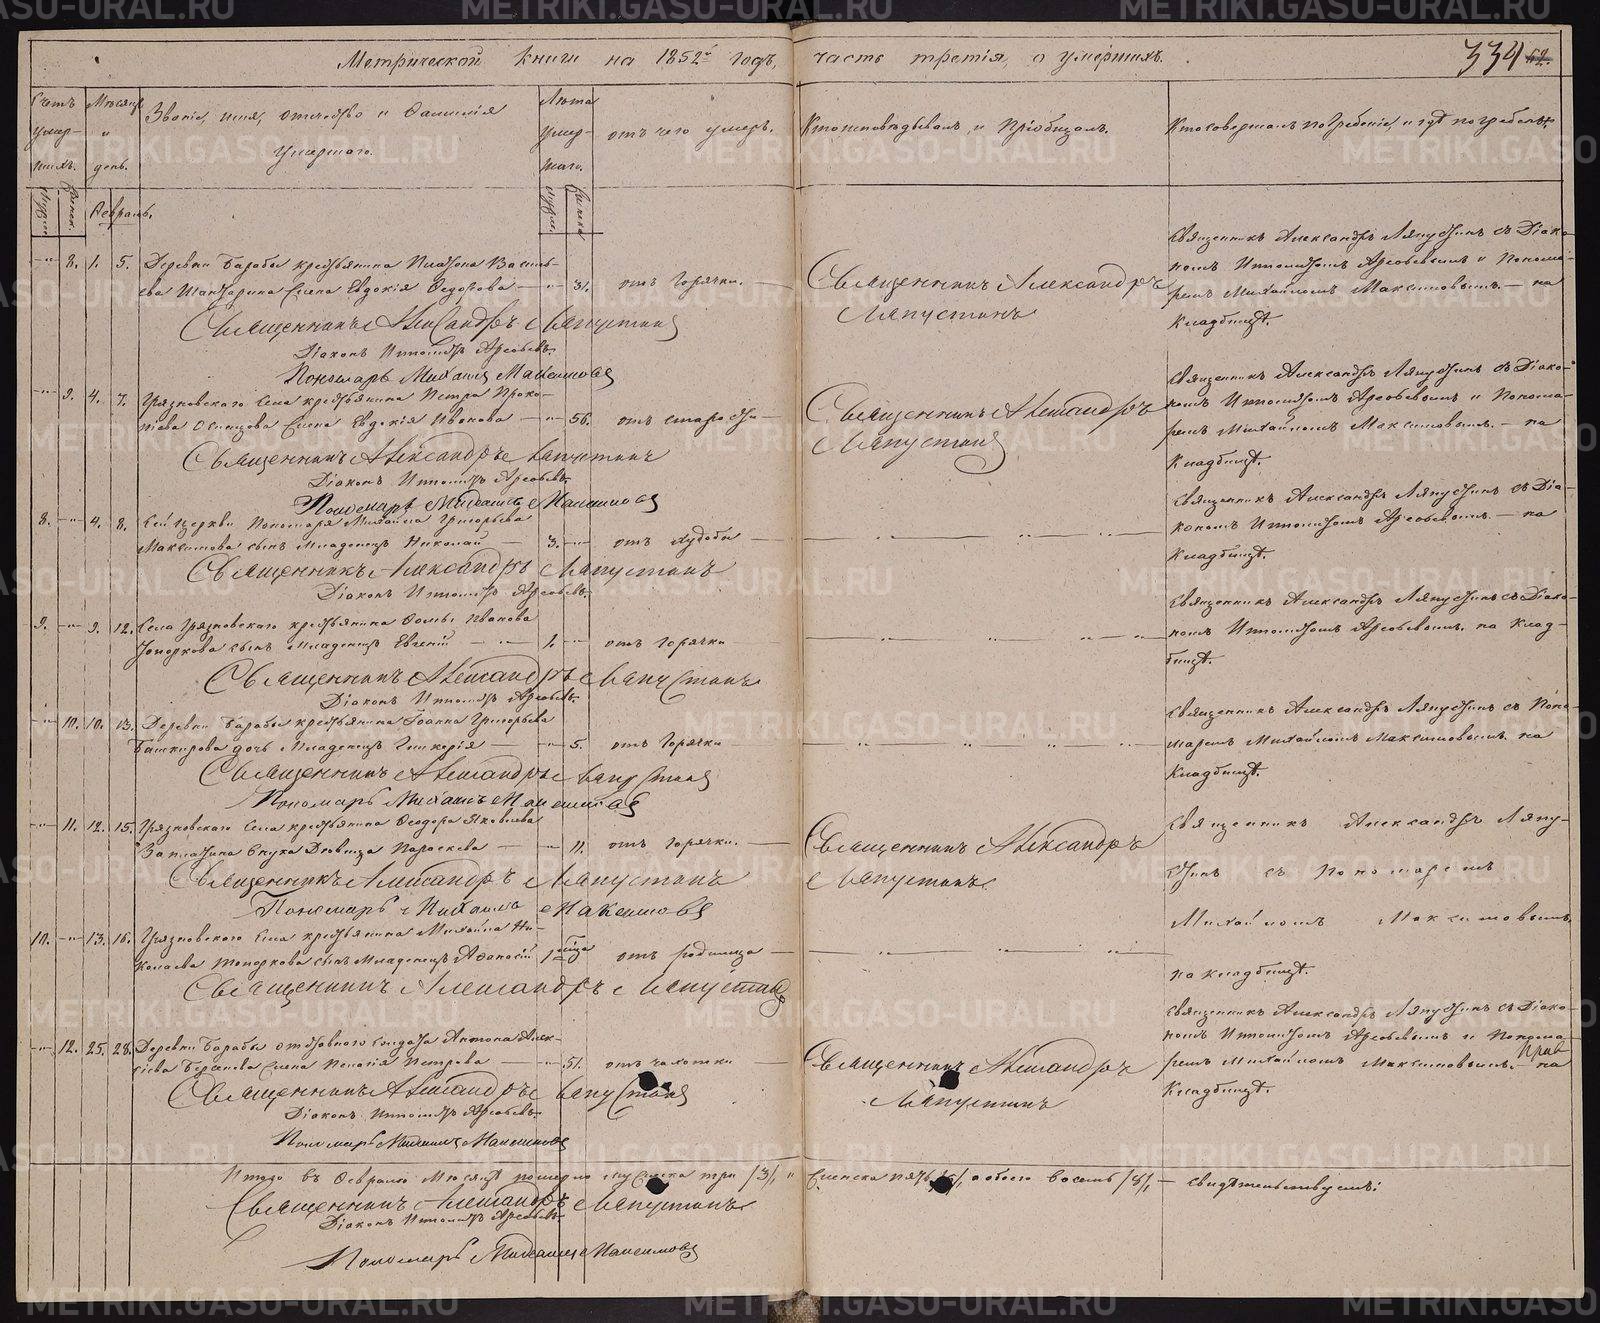 Метрической книги на 1852й годъ, часть третія, о умершихъ.
334
Счетъ умер-шихъ.
Мѣсяцъ и день.
Званіе, имя, отчество и фамилія умершаго.
Лѣта умер-шаго.
отъ чего умеръ.
Кто исповѣдывалъ и пріобщалъ.
Кто совершалъ погребеніе, и гдѣ погребены.
Мужск.
Женск.
Февраль.
8. 1. 5. Деревни Барабы крестьянина Платона Василь-
ева жена Евдокія Федорова 31. отъ горячки.
Священникъ Александръ Ляпустинъ
Діаконъ Ипполитъ
Пономарь Михаилъ Максимовъ
Священникъ Александръ
Ляпустинъ
Священникъ Александръ Ляпустинъ съ Діако-
номъ Ипполитомъ и Понома-
ремъ Михайломъ Максимовымъ. на
кладбищѣ.
9. 4. 7. Грязновскаго села крестьянина Петра Проко-
піева жена Евдокія Иванова 56. отъ старости
Священникъ Александръ Ляпустинъ
Діаконъ Ипполитъ
Пономарь Михаилъ Максимовъ
Священникъ Александръ
Ляпустинъ
Священникъ Александръ Ляпустинъ съ Діако-
номъ Ипполитомъ и Понома-
ремъ Михайломъ Максимовымъ. на
кладбищѣ.
8. 4. 8. Сей церкви Пономаря Михаила Григорьева
Максимова сынъ младенецъ Николай 3. отъ худобы
Священникъ Александръ Ляпустинъ
Діаконъ Ипполитъ
Священникъ Александръ Ляпустинъ съ Діа-
кономъ Ипполитомъ на
кладбищѣ.
9. 9. 12. Села Грязновскаго крестьянина Фомы Иванова
Топоркова сынъ младенецъ Евгеній 1. отъ горячки
Священникъ Александръ Ляпустинъ
Діаконъ Ипполитъ
Священникъ Александръ Ляпустинъ съ Діако-
номъ Ипполитомъ на клад-
бищѣ.
10. 10. 13. Деревни Барабы крестьянина Іоанна Григорьева
Башкирова дочь младенецъ Гликерія 5. отъ горячки
Священникъ Александръ Ляпустинъ
Пономарь Михаилъ Максимовъ
Священникъ Александръ Ляпустинъ съ Поно-
маремъ Михайломъ Максимовымъ на
кладбищѣ.
11. 12. 15. Грязновскаго села крестьянина Феодора Яковлева
внука Дѣвица Параскева 11. отъ горячки.
Священникъ Александръ Ляпустинъ
Пономарь Михаилъ Максимовъ
Священникъ Александръ
Ляпустинъ
Священникъ Александръ Ляпу-
стинъ съ Пономаремъ
Михайломъ Максимовымъ
на кладбищѣ.
10. 13. 16. Грязновскаго села крестьянина Михаила Ни-
колаева Топоркова сынъ младенецъ Афанасій 1 отъ родимца
Священникъ Александръ Ляпустинъ
12. 25. 28. Деревни Барабы отставнаго солдата Антона Алек-
сіева жена Пелагія Петрова 51. отъ чахотки
Священникъ Александръ Ляпустинъ
Діаконъ Ипполитъ
Пономарь Михаилъ Максимовъ
Священникъ Александръ
Ляпустинъ
Священникъ Александръ Ляпустинъ съ Діако-
номъ Ипполитомъ и Понома-
ремъ Михайломъ Максимовымъ. на
кладбищѣ.
Итого въ Феврале мѣсяцѣ померло мужеска три /3/, женска пять /5/, а обоего восемь /8/, свидѣтельствуемъ:
Священникъ Александръ Ляпустинъ
Діаконъ Ипполитъ
Пономарь Михаилъ Максимовъ
METRIKI.GASO-URAL.RU